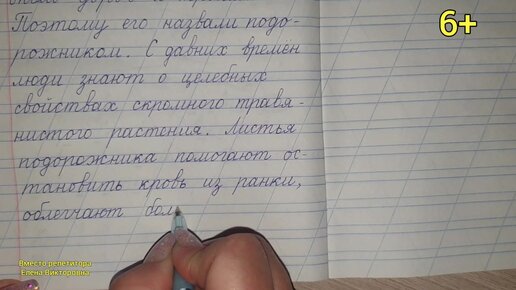 Поэтому его назвали подо-
рожником. С давних времён
люди знают о целебных
свойствах скромного травя-
нистого растения. Листья
подорожника помогают ос-
тановить кровь из ранки,
облегчают бол
6+
Вместо репетитора
Елена Викторовна